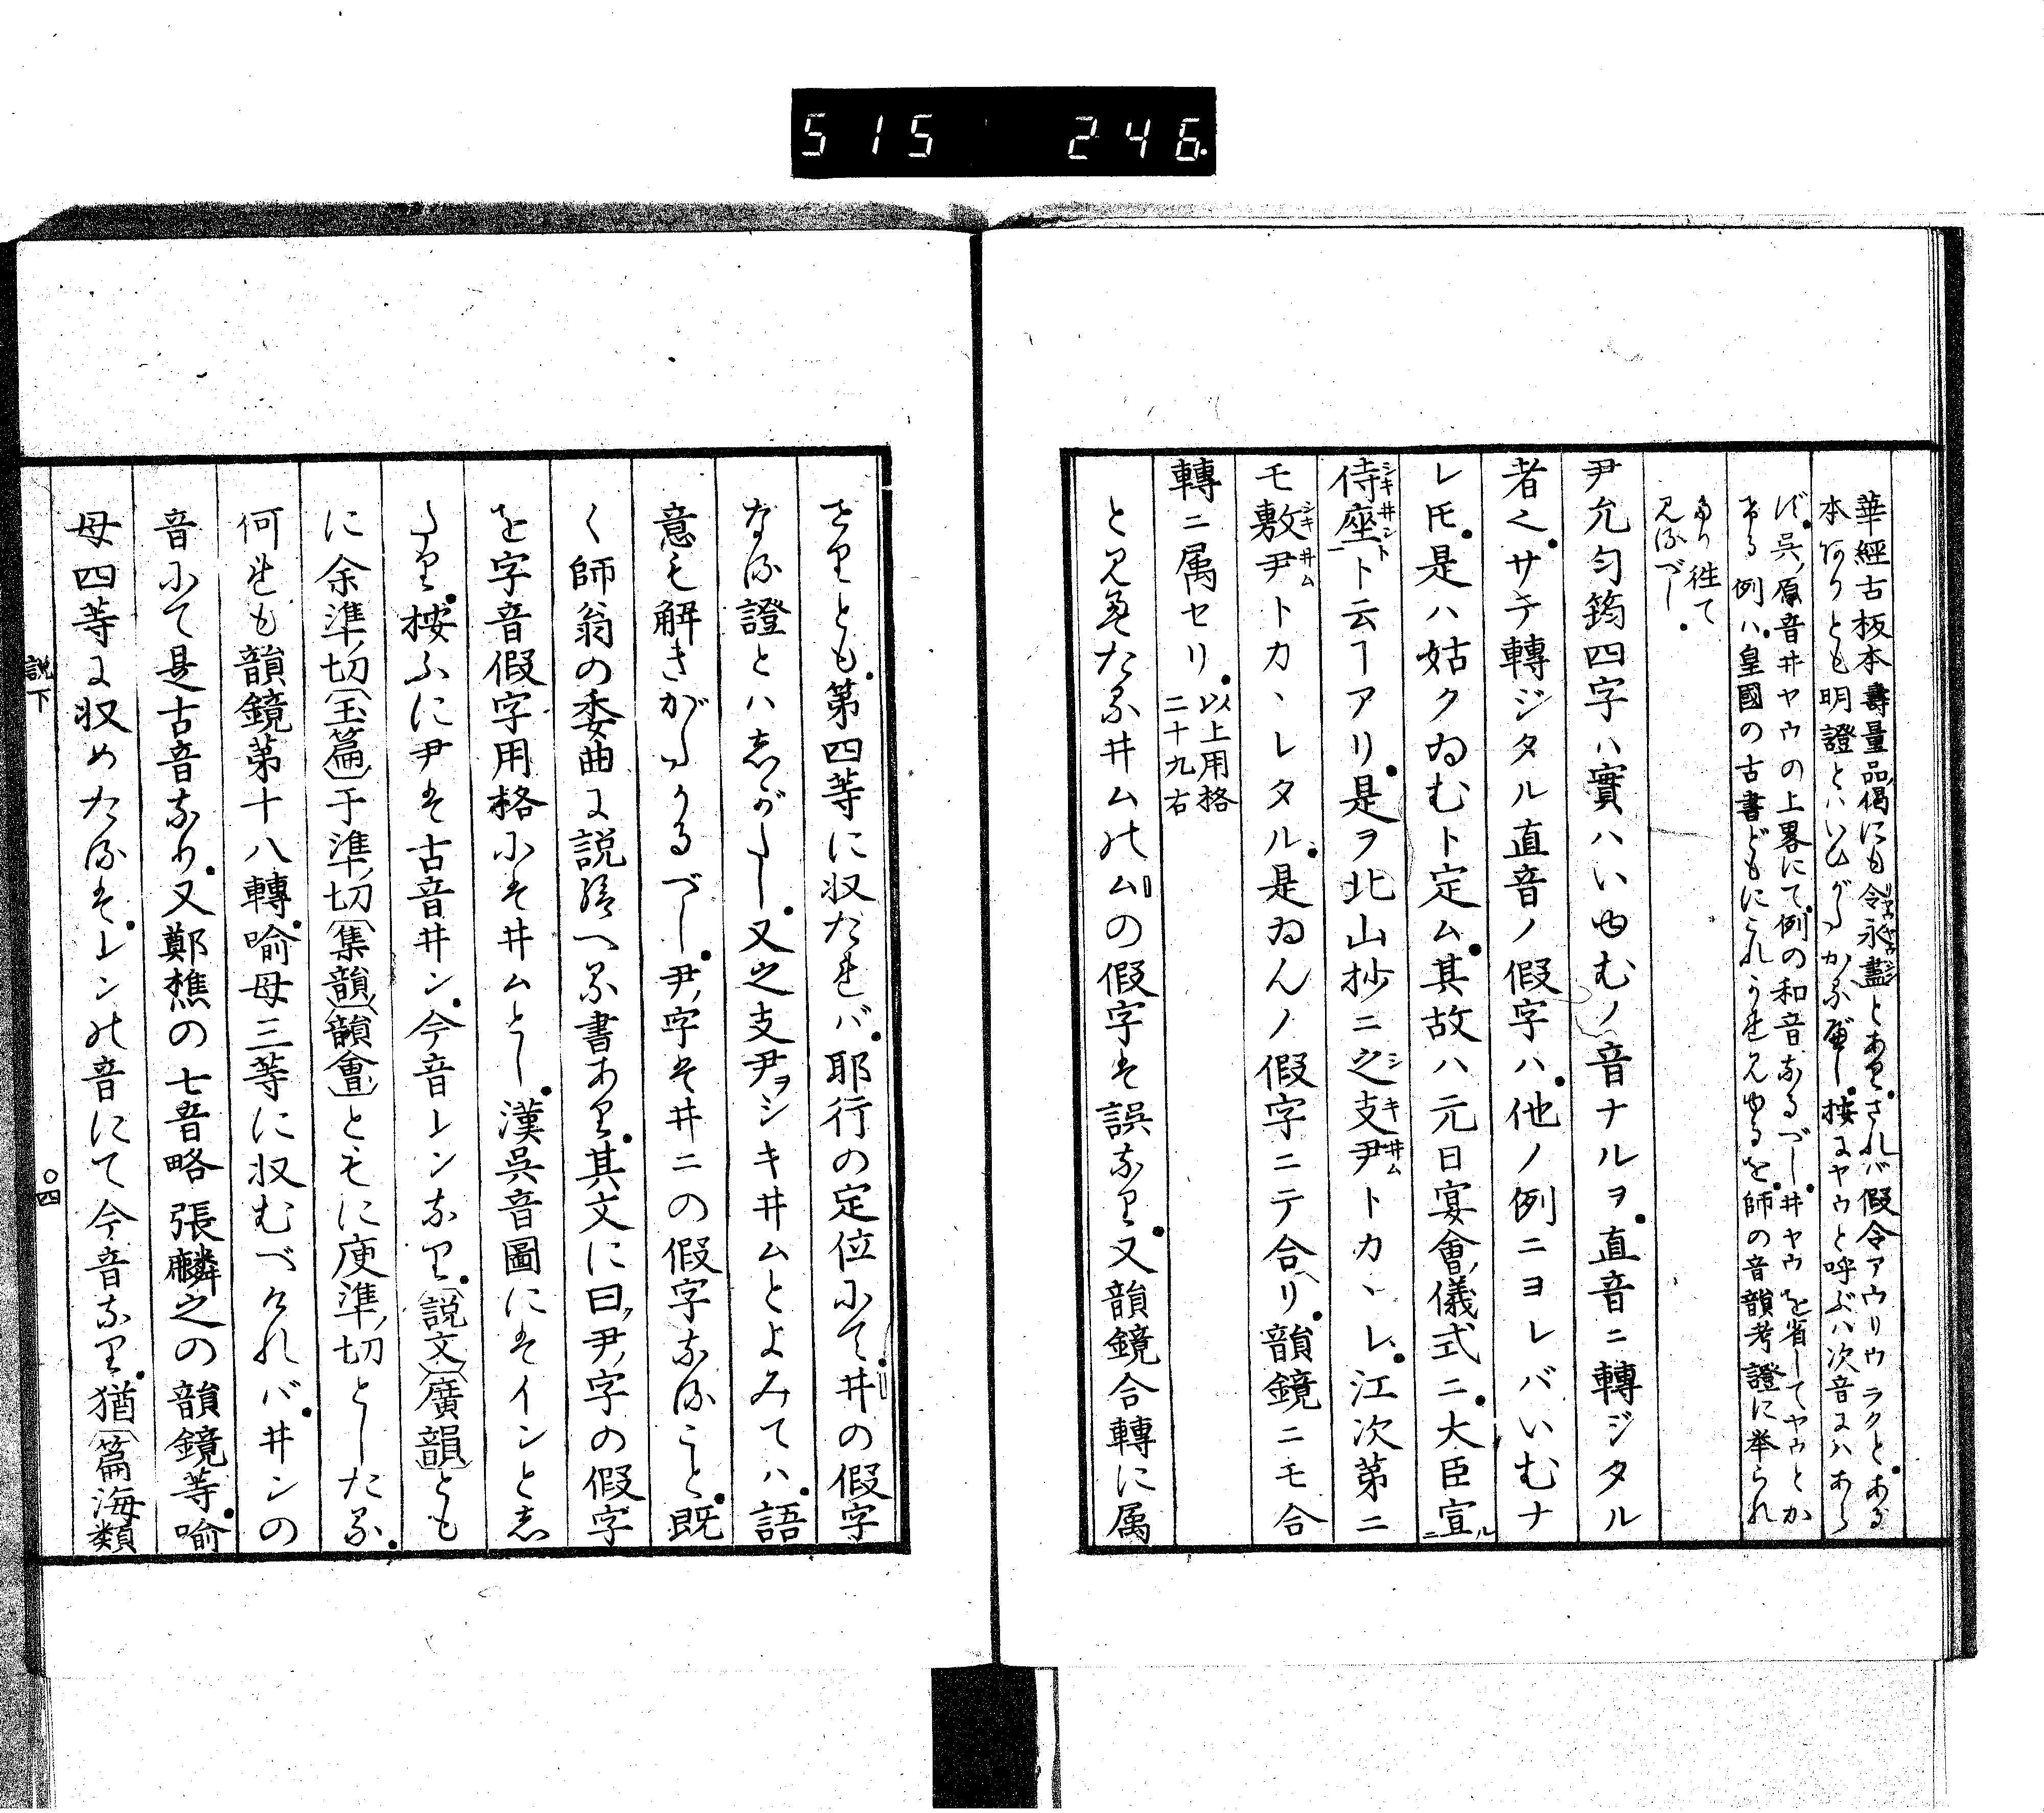 515 246
華經古板本壽量品偈にも令永盡とあり。されバ假令アウリウラクと。ある
本ありとも明證とハいひがたかるべし。按にヤウと呼ぶハ次音にハあら
ず。呉原音ヰヤウの上畧にて。例の和音なるべし。ヰヤウを省してヤウとか
ける例ハ。皇國の古書どもにこれかれ見ゆるを。師の音韻考證に挙られ
たり往て
見るべし。
尹允匀筠四字ハ實ハいゆむノ音ナルヲ。直音ニ轉ジタル
者也。サテ轉ジタル直音ノ假字ハ。他ノ例ニヨレバいむナ
レ𪜈。是ハ姑クゐむト定ム。其故ハ元日宴會儀式ニ。大臣宣
侍座ト云ヿアリ。是ヲ北山抄ニ之支尹トカヽレ。江次第ニ
モ敷尹トカヽレタル。是ゐんノ假字ニテ合リ。韻鏡ニモ合
轉ニ属セリ。以上用格二十九右
と見えたるヰムのムの假字は誤なり。又韻鏡合轉に属
せりとも。第四等に収たれバ。耶行の定位にて。ヰの假字
なる證とハしがたし。又之支尹ヲシキヰムとよみてハ。語
意も解きがたかるべし。尹字はヰニの假字なること。既
く師翁の委曲に説給へる書あり。其文に曰尹字の假字
を字音假字用格にはヰムとし。漢呉音圖にはインとし
たり。按ふに尹は古音ヰン。今音レンなり。〔説文〕〔廣韻〕とも
に余準切〔玉篇〕于準切〔集韻〕〔韻會〕ともに庾準切としたる。
何れも韻鏡第十八轉。喩母三等に収むべけれバ。ヰンの
音にて是古音なり。又鄭樵の七音略張麟之の韻鏡等。喩
母四等に収めたるは。レンの音にて今音なり。猶〔篇海類
説下
〇四